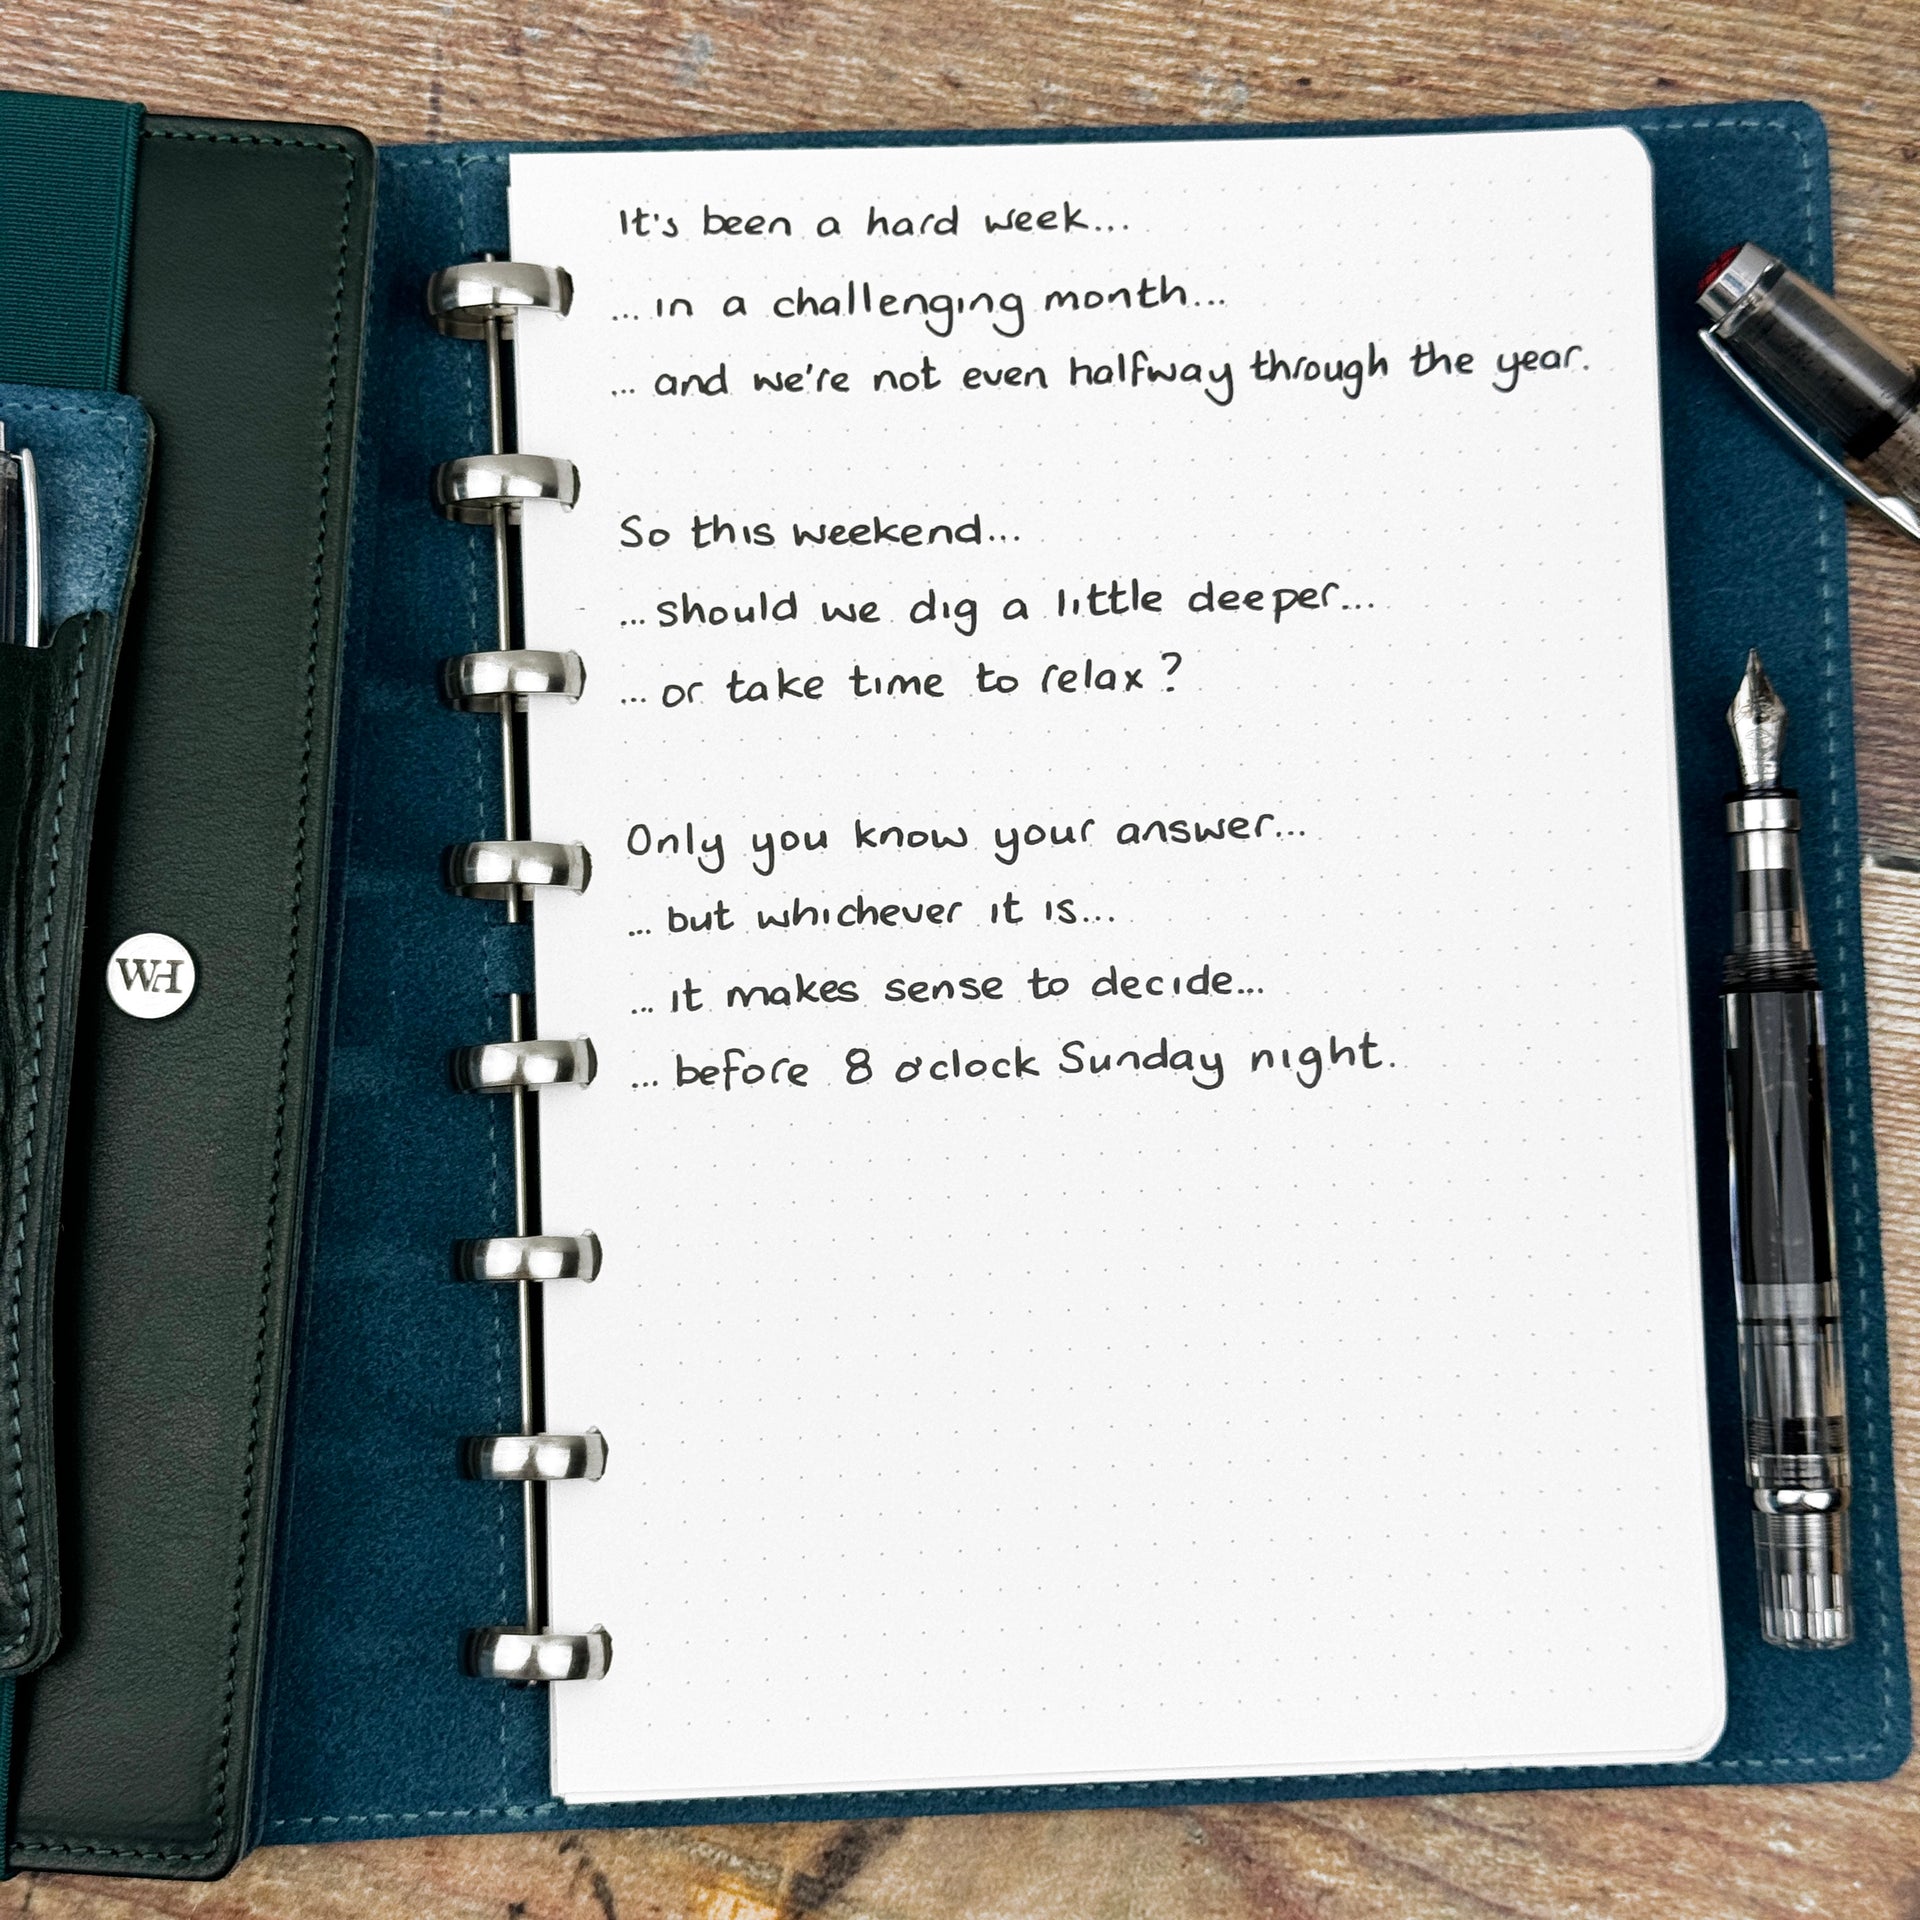 It's been a hard week...
... in a challenging month...
... and we're not even halfway through the year.
So this weekend...
... should we dig a little deeper...
... or take time to relax?
Only you know your answer...
... but whichever it is...
... it makes sense to decide...
... before 8 o'clock Sunday night.
WH